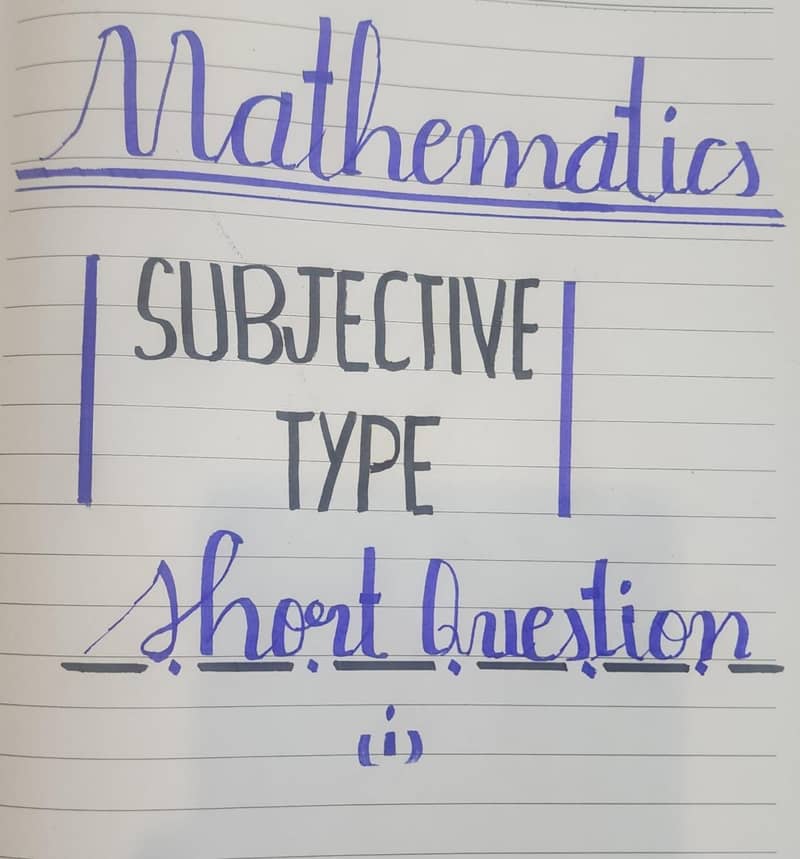 Mathematics
SUBJECTIVE
TYPE
Short Question
(i)